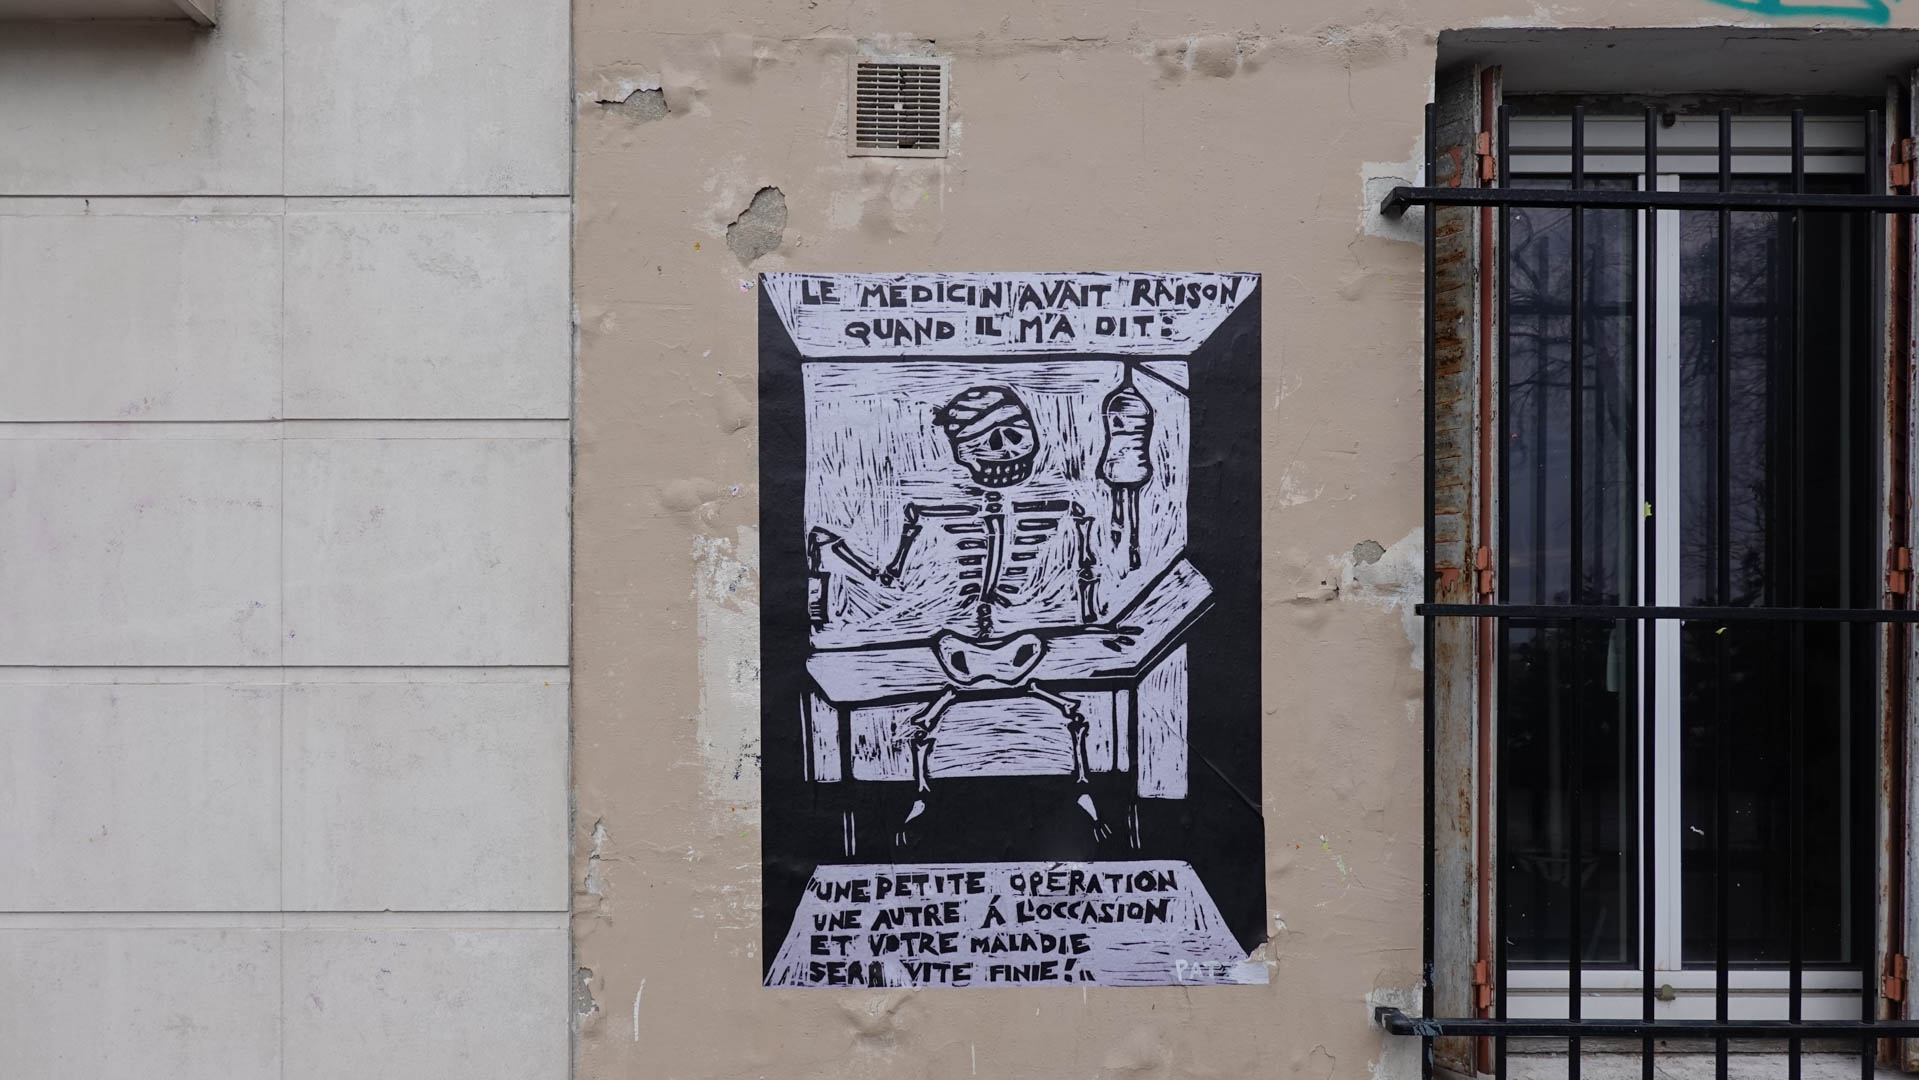 LE MÉDICIN AVAIT RAISON
QUAND IL M'A DIT:
"UNE PETITE OPÉRATION
UNE AUTRE Á L'OCCASION
ET VOTRE MALADIE
SERA VITE FINIE!"
PAT